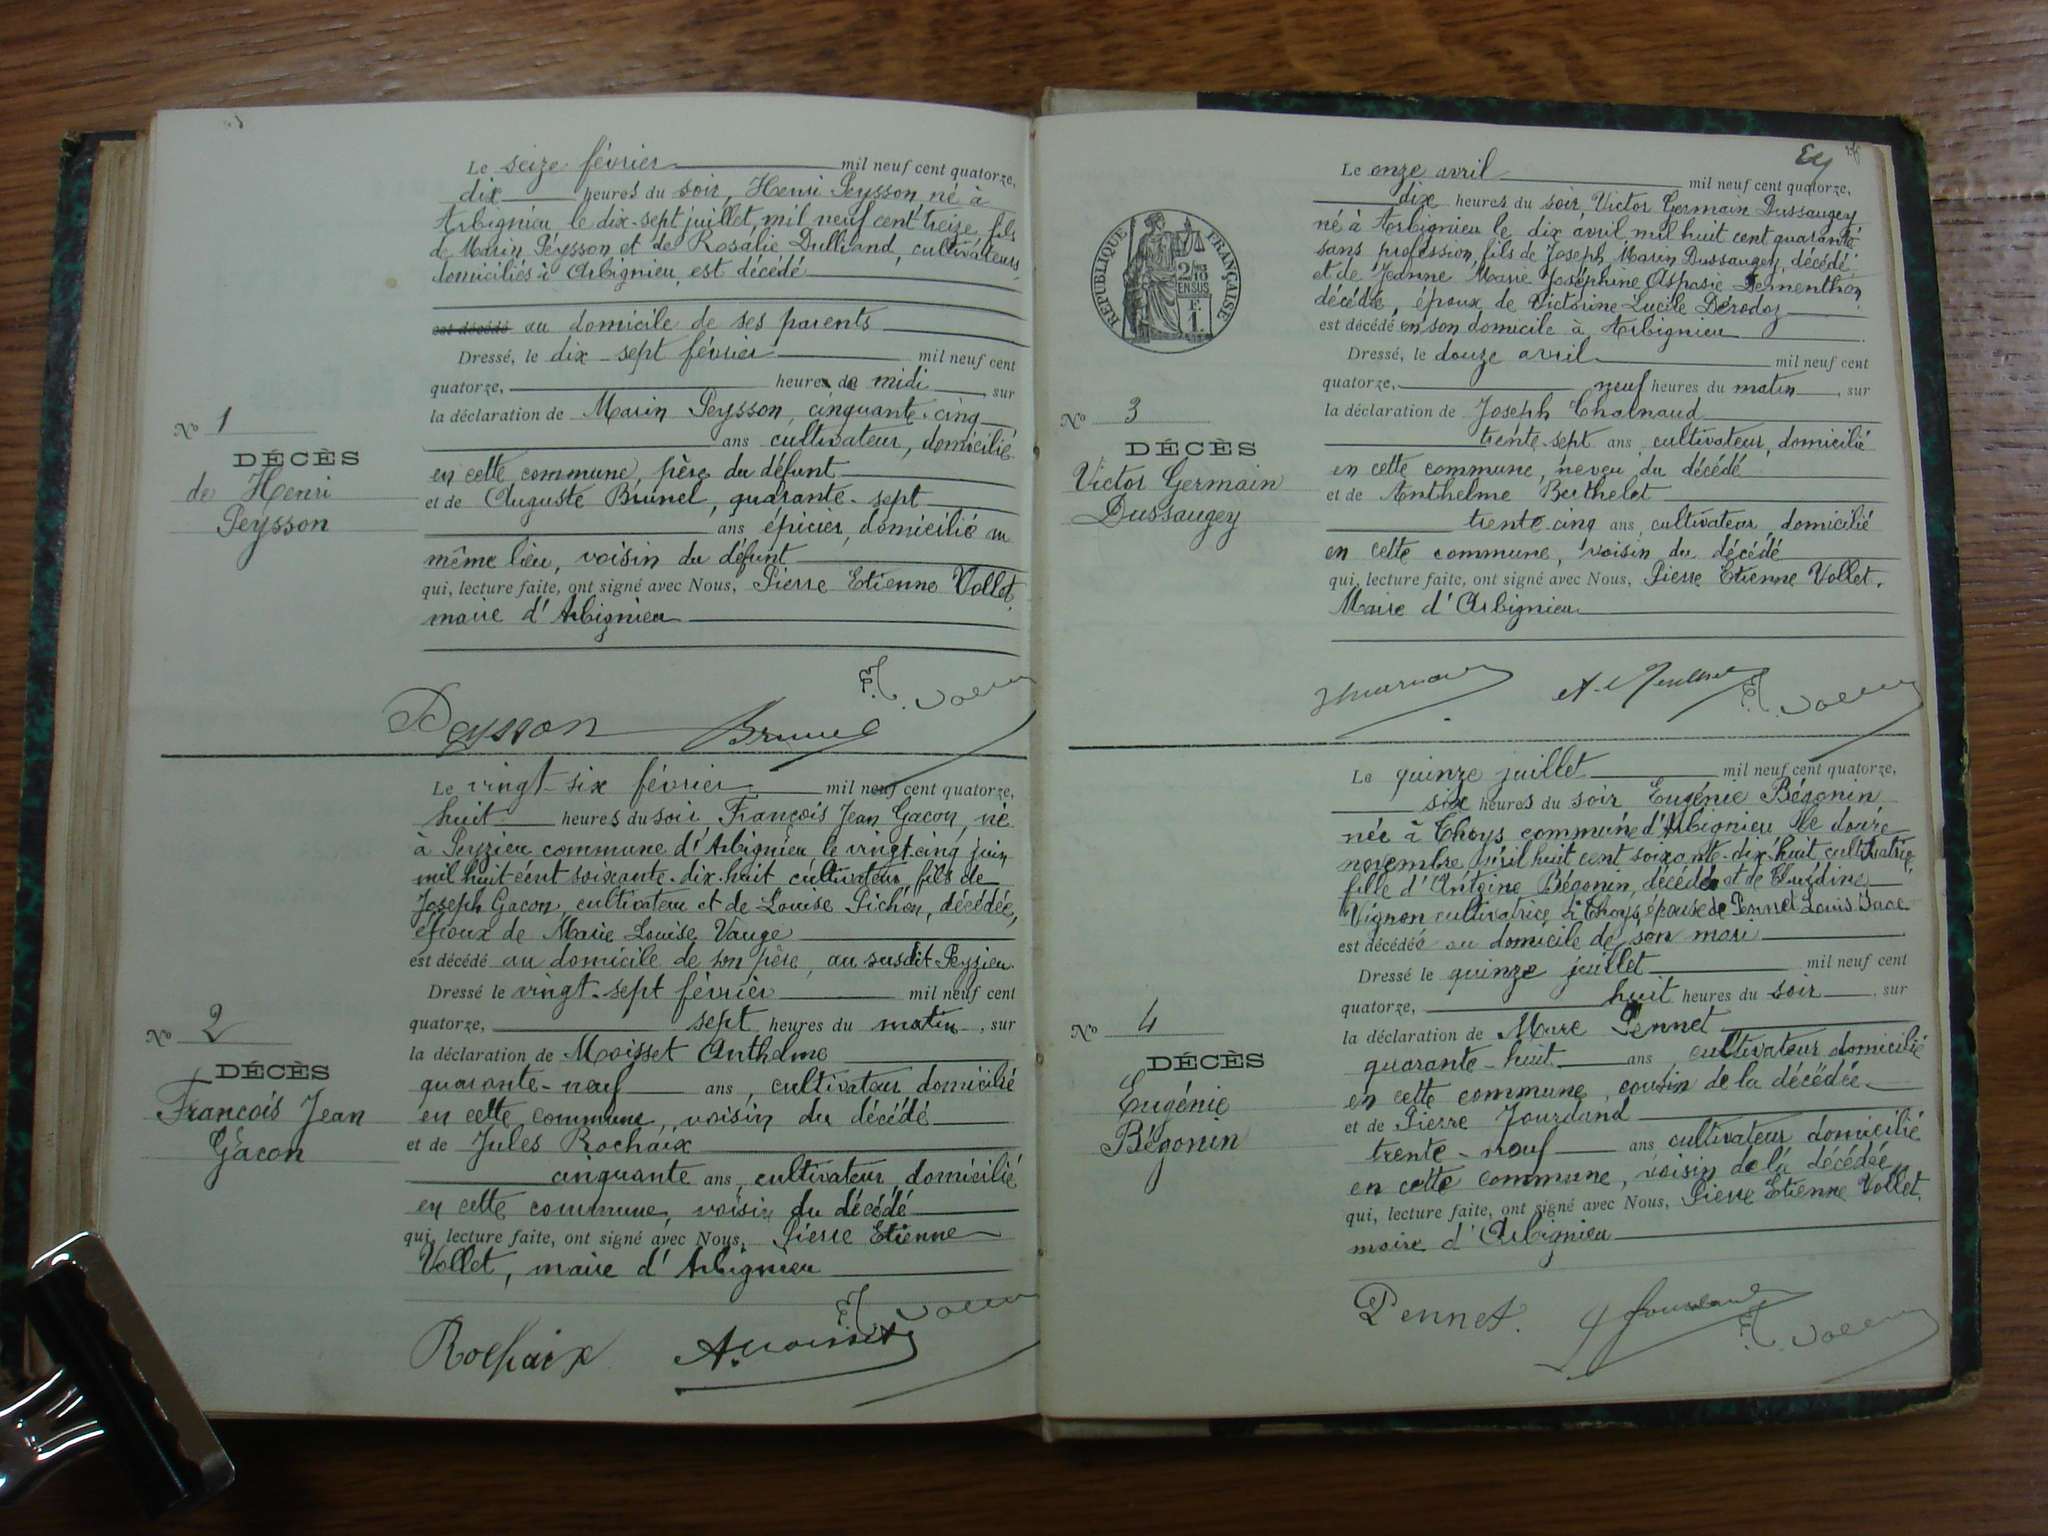 Le seize février mil neuf cent quatorze,
dix heures du soir, Henri Peysson né à
Arbignieu le dix-sept juillet, mil neuf cent treize, fils
de Marin Peysson et de Rosalie Dullrand, cultivateurs
domiciliés à Arbignieu, est décédé
est décédé au domicile de ses parents
Dressé, le dix-sept février mil neuf cent
quatorze, heure de midi, sur
la déclaration de Marin Peysson, cinquante-cinq
ans cultivateur, domicilié
en cette commune, père du défunt
et de Auguste Brunel, quarante-sept
ans épicier, domicilié au
même lieu, voisin du défunt
qui, lecture faite, ont signé avec Nous, Pierre Etienne Vollet,
maire d'Arbignieu
No 1
DÉCÈS
de Henri
Peysson
Peysson Brunel
Le vingt-six février mil neuf cent quatorze,
huit heures du soir François Jean Gacon, né
à Peyzieu commune d'Arbignieu le vingt-cinq juin
mil huit cent soixante-dix-huit cultivateur fils de
Joseph Gacon, cultivateur et de Louise Pichon, décédée,
époux de Marie Louise Vauge
est décédé au domicile de son père, au susdit Peyzieu.
Dressé le vingt-sept février mil neuf cent
quatorze, sept heures du matin, sur
la déclaration de Moisset Anthelme
quarante-neuf ans, cultivateur domicilié
en cette commune, voisin du décédé
et de Jules Rochaix
cinquante ans, cultivateur, domicilié
en cette commune, voisin du décédé
qui, lecture faite, ont signé avec Nous, Pierre Etienne
Vollet, maire d'Arbignieu
No 2
DÉCÈS
François Jean
Gacon
Rochaix A. Moisset
RÉPUBLIQUE FRANÇAISE
2/10
EN SUS
1 F.
Le onze avril mil neuf cent quatorze,
dix heures du soir, Victor Germain Dussaugey
né à Arbignieu le dix avril mil huit cent quarante
sans profession, fils de Joseph Marin Dussaugey, décédé
et de Jeanne Marie Joséphine Aspasie Dementhon
décédée, époux de Victorine-Lucile Dérodoz
est décédé, en son domicile à Arbignieu
Dressé, le douze avril mil neuf cent
quatorze, neuf heures du matin, sur
la déclaration de Joseph Chalnaud
trente-sept ans, cultivateur, domicilié
en cette commune, neveu du décédé
et de Anthelme Berthelet
trente cinq ans, cultivateur, domicilié
en cette commune, voisin du décédé
qui, lecture faite, ont signé avec Nous, Pierre Etienne Vollet,
Maire d'Arbignieu
No 3
DÉCÈS
Victor Germain
Dussaugey
Le quinze juillet mil neuf cent quatorze,
six heures du soir Eugénie Bégonin
née à Thoys commune d'Arbignieu le douze
novembre mil huit cent soixante-dix-huit cultivatrice,
fille d'Antoine Bégonin, décédé et de Claudine
Vignon cultivatrice à Thoys, épouse de Pennet Louis
est décédée au domicile de son mari
Dressé le quinze juillet mil neuf cent
quatorze, huit heures du soir, sur
la déclaration de Marc Pennet
quarante-huit ans, cultivateur domicilié
en cette commune, cousin de la décédée
et de Pierre Jourdand
trente-neuf ans cultivateur domicilié
en cette commune, voisin de la décédée
qui, lecture faite, ont signé avec Nous, Pierre Etienne Vollet,
maire d'Arbignieu
No 4
DÉCÈS
Eugénie
Bégonin
Pennet.